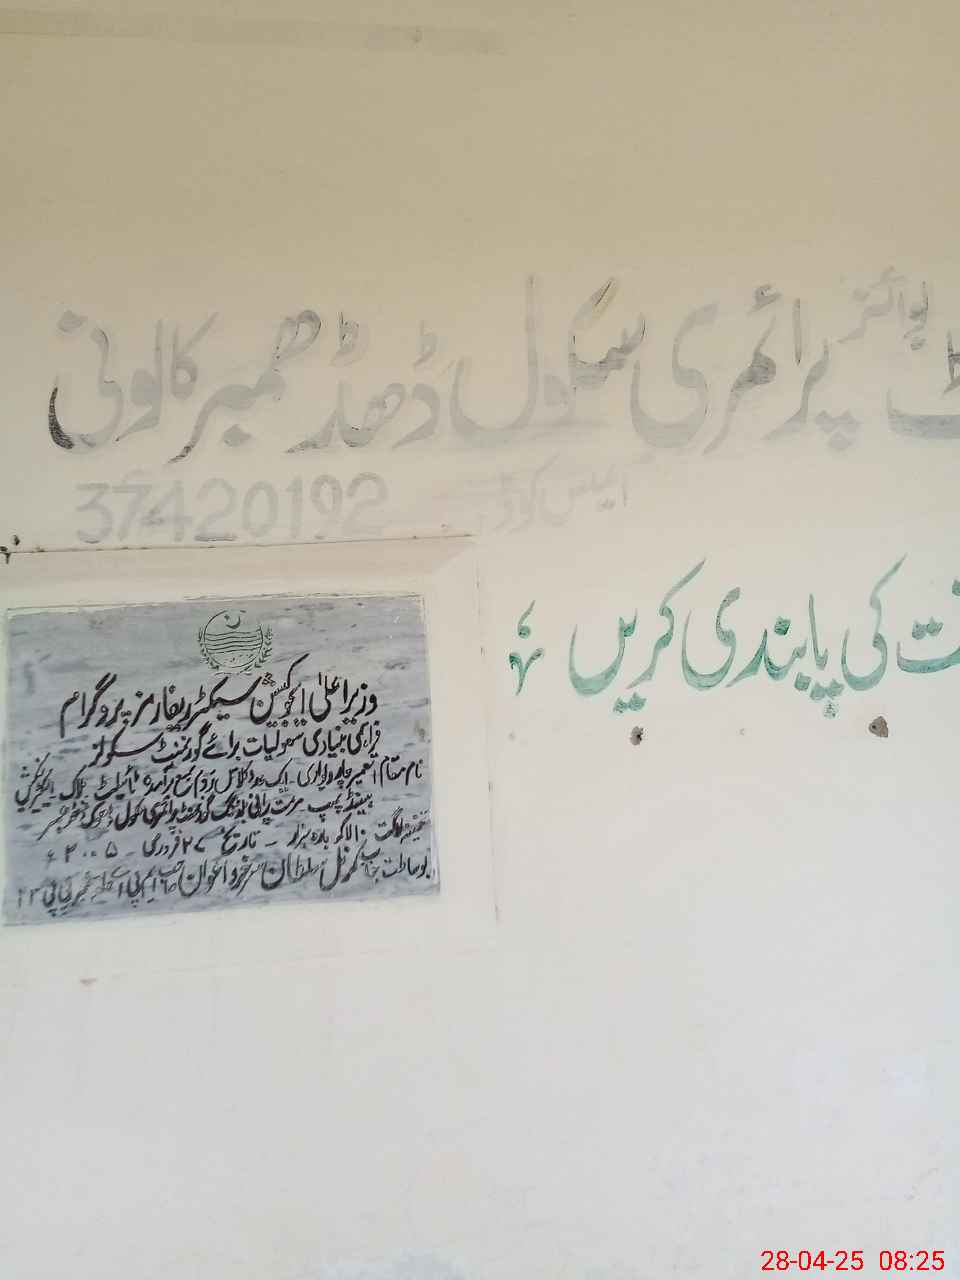 بوائز
پرائمری سکول ڈھڈھمبر کالونی
ایمس کوڈ: 37420192
کی پابندی کریں
وزیراعلیٰ ایجوکیشن سیکٹر ریفارمز پروگرام
فراہمی بنیادی سہولیات برائے گورنمنٹ سکولز
نام مقام تعمیر چار دیواری۔ ایک عدد کلاس روم بمع برآمدہ ٹائیلٹ بلاک۔ الیکٹریفکیشن
ہینڈ پمپ مرمت پرانی بلڈنگ گورنمنٹ پرائمری سکول
تخمینہ لاگت ۱۰ لاکھ بارہ ہزار - تاریخ ۲۷ فروری - ۲۰۰۵ء
بوساطت جناب کرنل سلطان سرخرو اعوان صاحب ایم پی اے حلقہ نمبر پی پی ۲۲
28-04-25 08:25